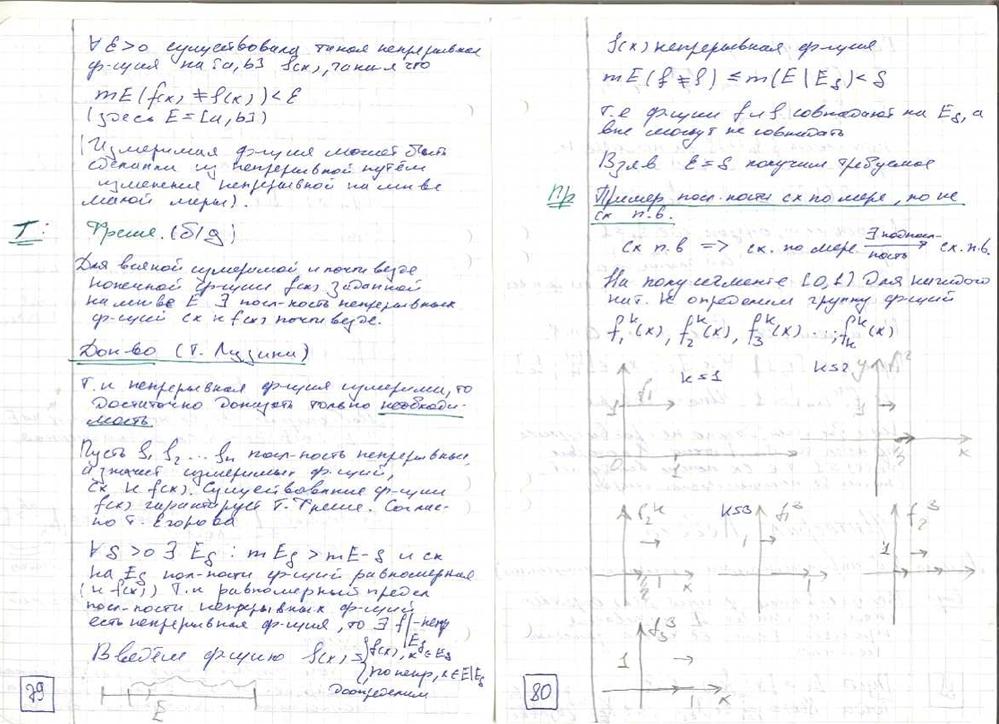 ∀ ε>0 существовала такая непрерывная
ф-ция на [a,b] g(x), такая что
mE(f(x) ≠ g(x)) < ε
(здесь E = [a,b])
(Измеримая ф-ция может быть
сделана из непрерывной путём
изменения непрерывной на мн-ве
малой меры).
T: Фреше. (б/д)
Для всякой измеримой и почти везде
конечной ф-ции f(x) заданной
на мн-ве E ∃ посл-ность непрерывных
ф-ций сх к f(x) почти везде.
Док-во (Т. Лузина)
Т.к непрерывная ф-ция измерима, то
достаточно доказать только необходи-
мость.
Пусть g₁ g₂ ... gₙ посл-ность непрерывных,
а значит измеримых ф-ций,
сх к f(x). Существование ф-ции
f(x) гарантирует Т. Фреше. Соглас-
но Т. Егорова
∀ δ>0 ∃ E_δ : mE_δ > mE-δ и сх
на E_δ посл-ности ф-ций равномерная
(к f(x)) Т.к равномерный предел
посл-ности непрерывных ф-ций
есть непрерывная ф-ция, то ∃ f|E_δ - непр
Введём ф-цию g(x) = {f(x), x∈E_δ
{по непр, x∈E|E_δ
доопределим
E
79
g(x) непрерывная ф-ция
mE(f ≠ g) ≤ m(E|E_δ) < δ
Т.е ф-ции f и g совпадают на E_δ, а
вне могут не совпадать
Взяв ε = δ получим требуемое
Пр Пример посл-ности сх по мере, но не
сх п.в.
сх п.в => сх. по мере ∃ подпосл-ность → сх. п.в.
На полусегменте [0,1) для каждого
нат. k определим группу ф-ций
f₁ᵏ(x), f₂ᵏ(x), f₃ᵏ(x) ...; fₖᵏ(x)
k=1
k=2
y
x
k=3
1
x
f₁³
f₂³
1
f₃³
1
1
x
80